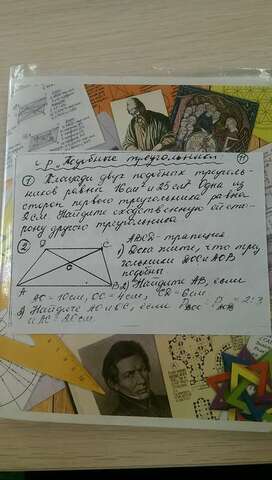 с.р. Подобные треугольники 11
① Площади двух подобных треуголь-
ников равны 16см² и 25см². Одна из
сторон первого треугольника равна
2см. Найдите сходственную ей сто-
рону другого треугольника
② D C ABCD - трапеция
1) Докажите, что треу-
O гольники DOC и AOB
подобны
A B 2) Найдите AB, если
AO = 10см, OC = 4см, CD = 6см
3) Найдите AO и OC, если P DOC : P AOB = 2:3
и AC = 20см.